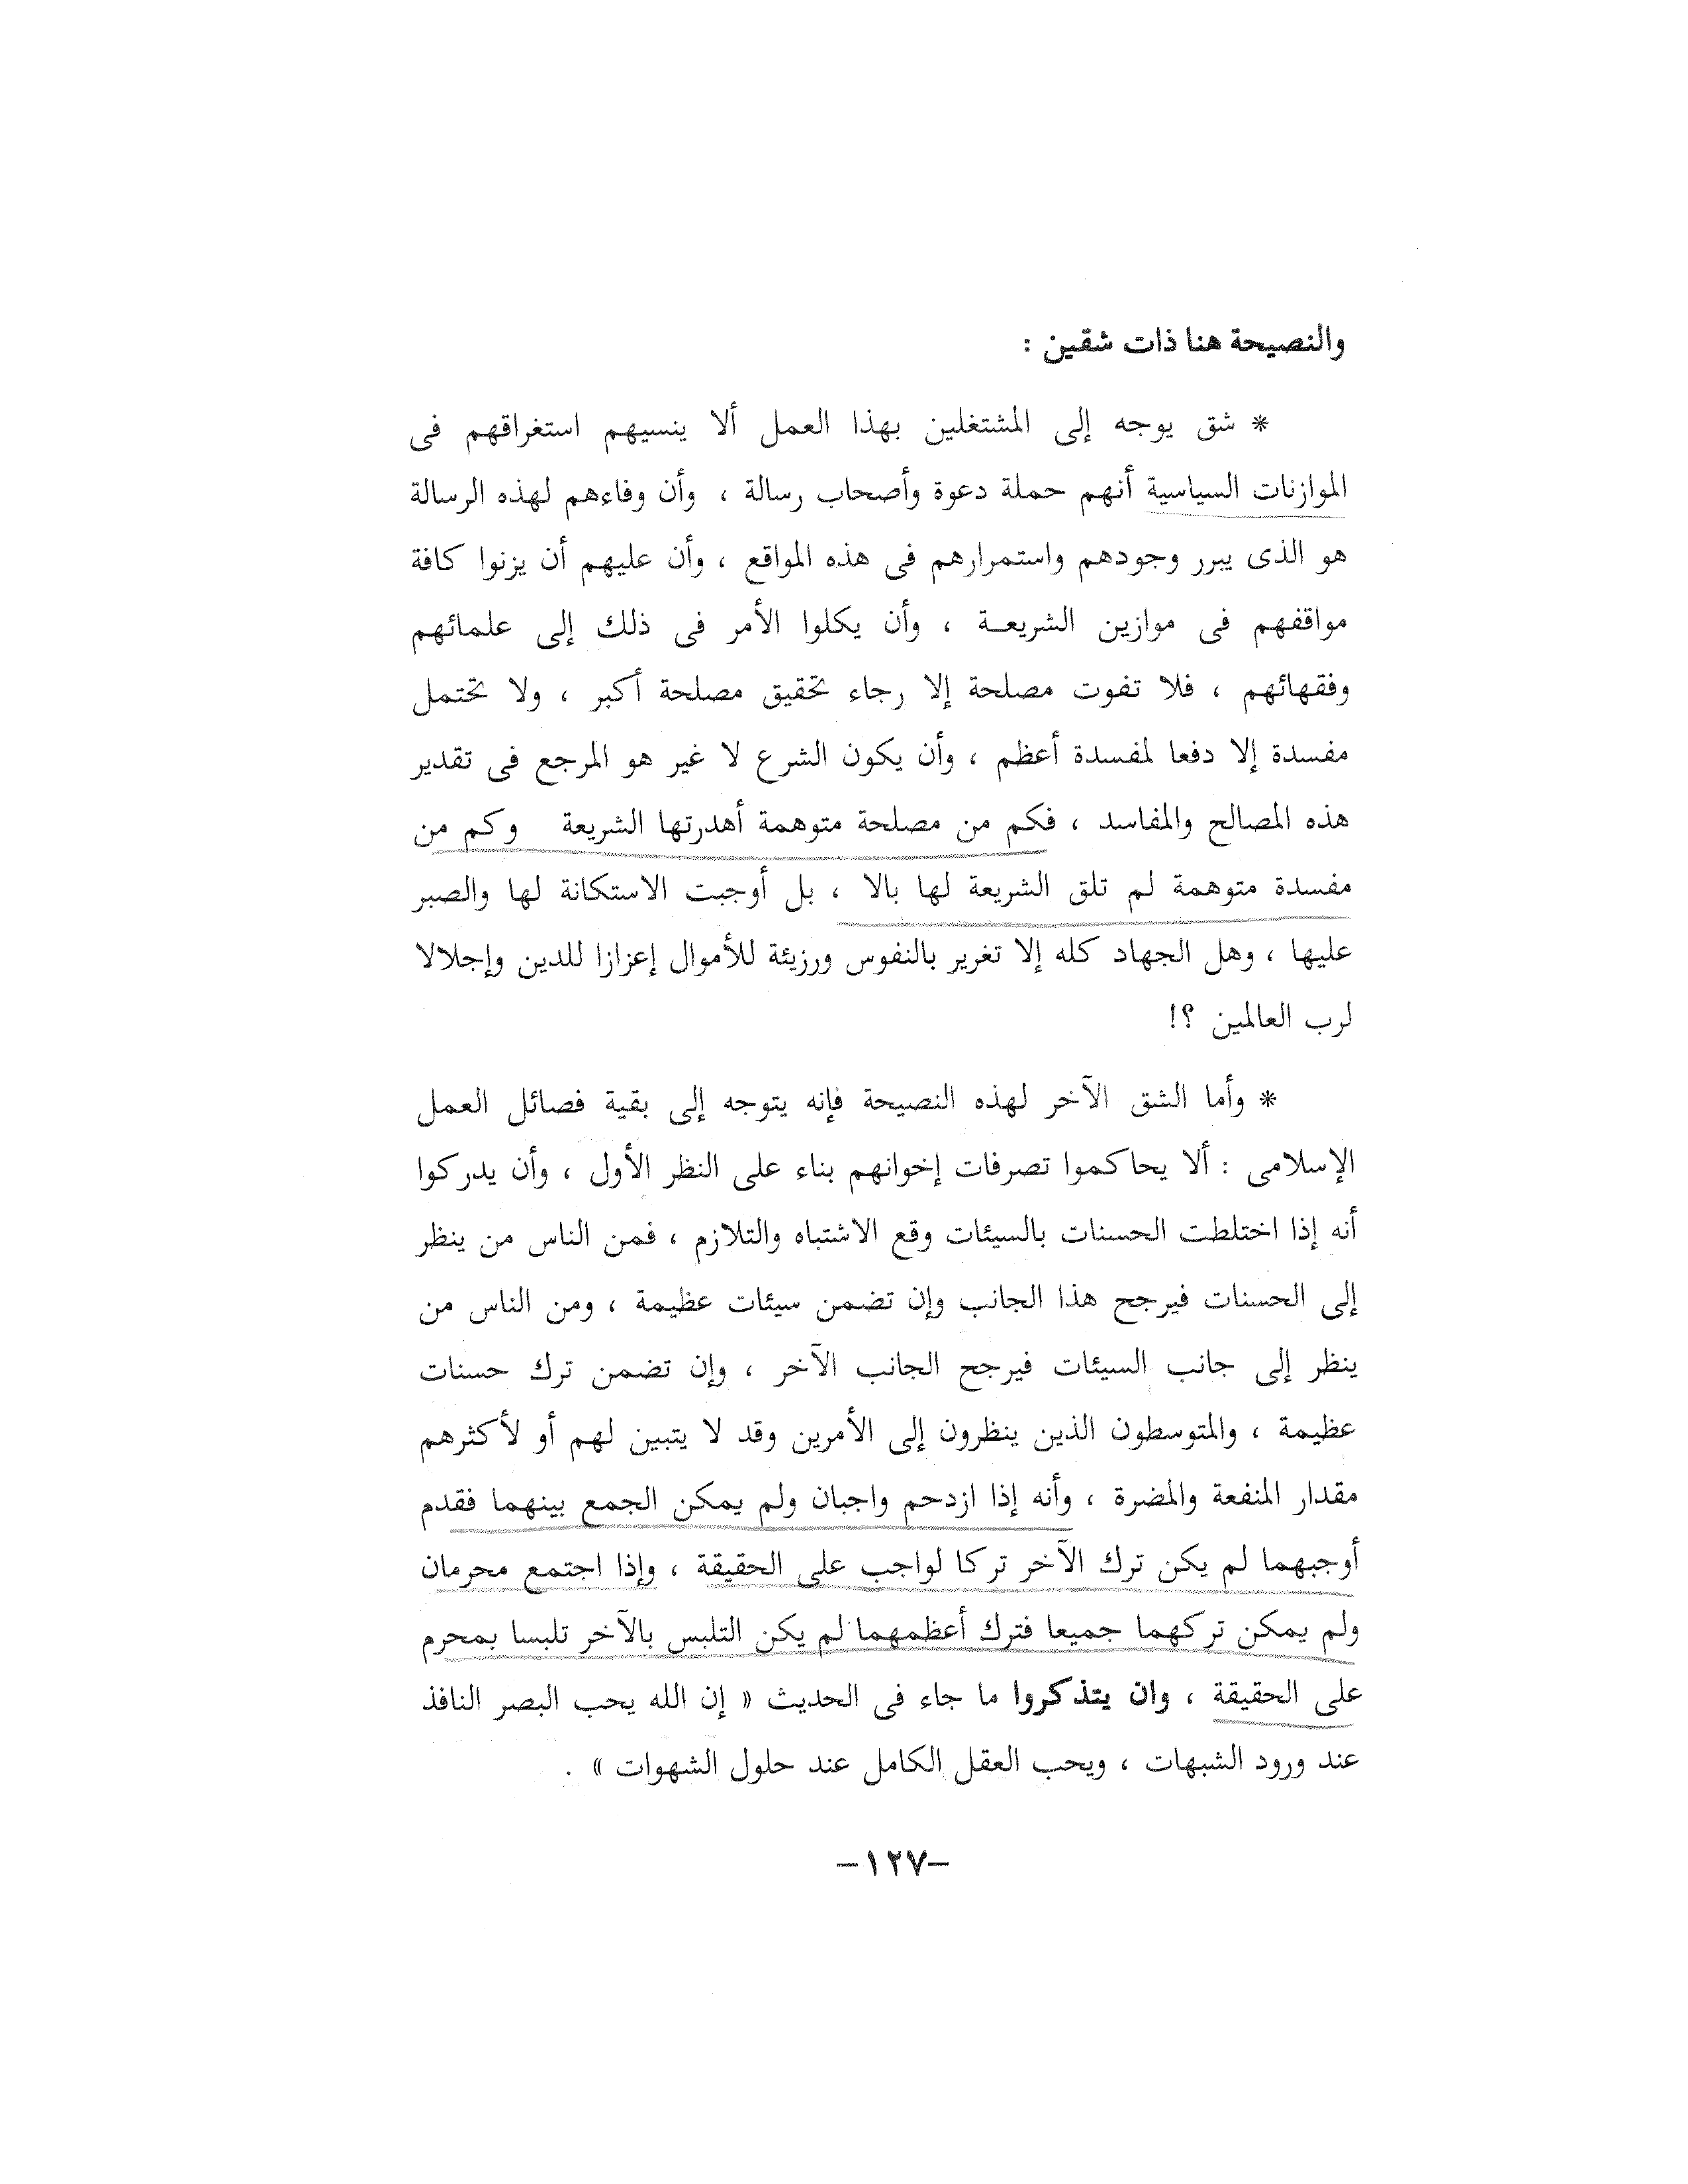 والنصيحة هنا ذات شقين :
* شق يوجه إلى المشتغلين بهذا العمل ألا ينسيهم استغراقهم فى
الموازنات السياسية أنهم حملة دعوة وأصحاب رسالة ، وأن وفاءهم لهذه الرسالة
هو الذى يبرر وجودهم واستمرارهم فى هذه المواقع ، وأن عليهم أن يزنوا كافة
مواقفهم فى موازين الشريعـة ، وأن يكلوا الأمر فى ذلك إلى علمائهم
وفقهائهم ، فلا تفوت مصلحة إلا رجاء تحقيق مصلحة أكبر ، ولا تحتمل
مفسدة إلا دفعا لمفسدة أعظم ، وأن يكون الشرع لا غير هو المرجع فى تقدير
هذه المصالح والمفاسد ، فكم من مصلحة متوهمة أهدرتها الشريعة وكم من
مفسدة متوهمة لم تلق الشريعة لها بالا ، بل أوجبت الاستكانة لها والصبر
عليها ، وهل الجهاد كله إلا تغرير بالنفوس ورزيئة للأموال إعزازا للدين وإجلالا
لرب العالمين ؟!
* وأما الشق الآخر لهذه النصيحة فإنه يتوجه إلى بقية فصائل العمل
الإسلامى : ألا يحاكموا تصرفات إخوانهم بناء على النظر الأول ، وأن يدركوا
أنه إذا اختلطت الحسنات بالسيئات وقع الاشتباه والتلازم ، فمن الناس من ينظر
إلى الحسنات فيرجح هذا الجانب وإن تضمن سيئات عظيمة ، ومن الناس من
ينظر إلى جانب السيئات فيرجح الجانب الآخر ، وإن تضمن ترك حسنات
عظيمة ، والمتوسطون الذين ينظرون إلى الأمرين وقد لا يتبين لهم أو لأكثرهم
مقدار المنفعة والمضرة ، وأنه إذا ازدحم واجبان ولم يمكن الجمع بينهما فقدم
أوجبهما لم يكن ترك الآخر تركا لواجب على الحقيقة ، وإذا اجتمع محرمان
ولم يمكن تركهما جميعا فترك أعظمهما لم يكن التلبس بالآخر تلبسا بمحرم
على الحقيقة ، وان يتذكروا ما جاء فى الحديث « إن الله يحب البصر النافذ
عند ورود الشبهات ، ويحب العقل الكامل عند حلول الشهوات » .
–١٢٧–